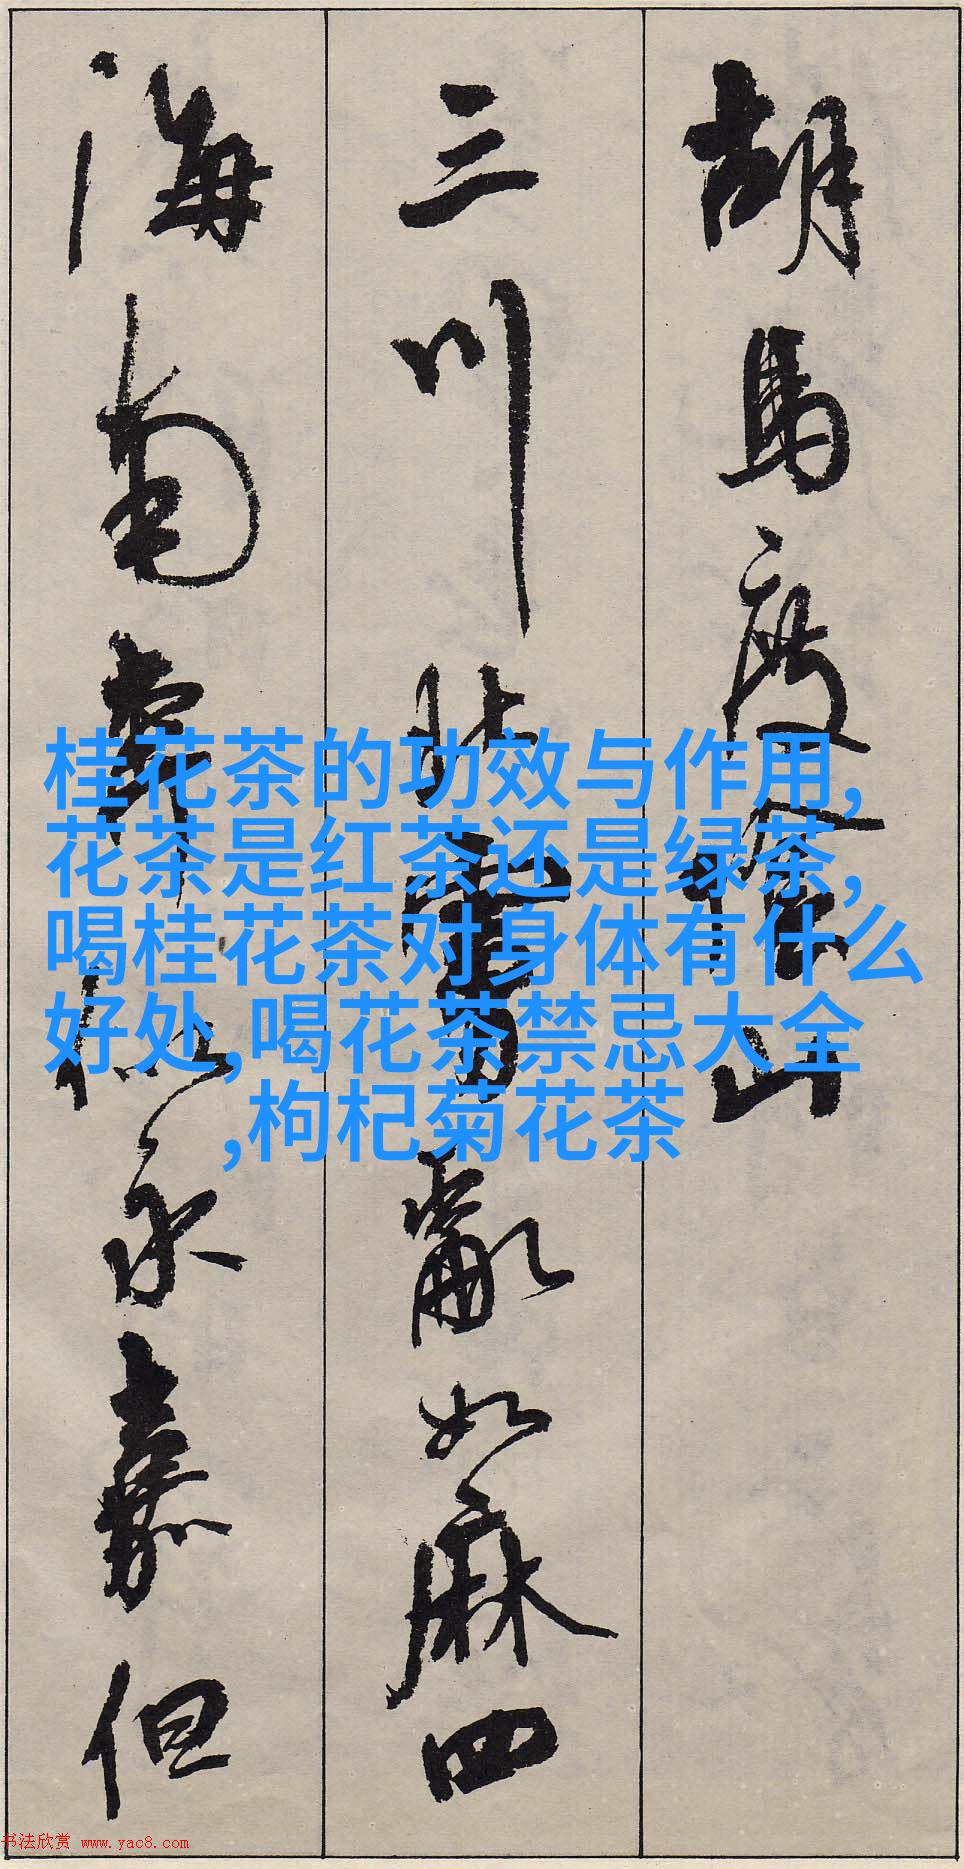 胡馬度陰山
三川北虜亂如麻四
海南奔似永嘉但
桂花茶的功效与作用,
花茶是红茶还是绿茶,
喝桂花茶对身体有什么
好处,喝花茶禁忌大全
,枸杞菊花茶
书法欣赏 www.yac8.com